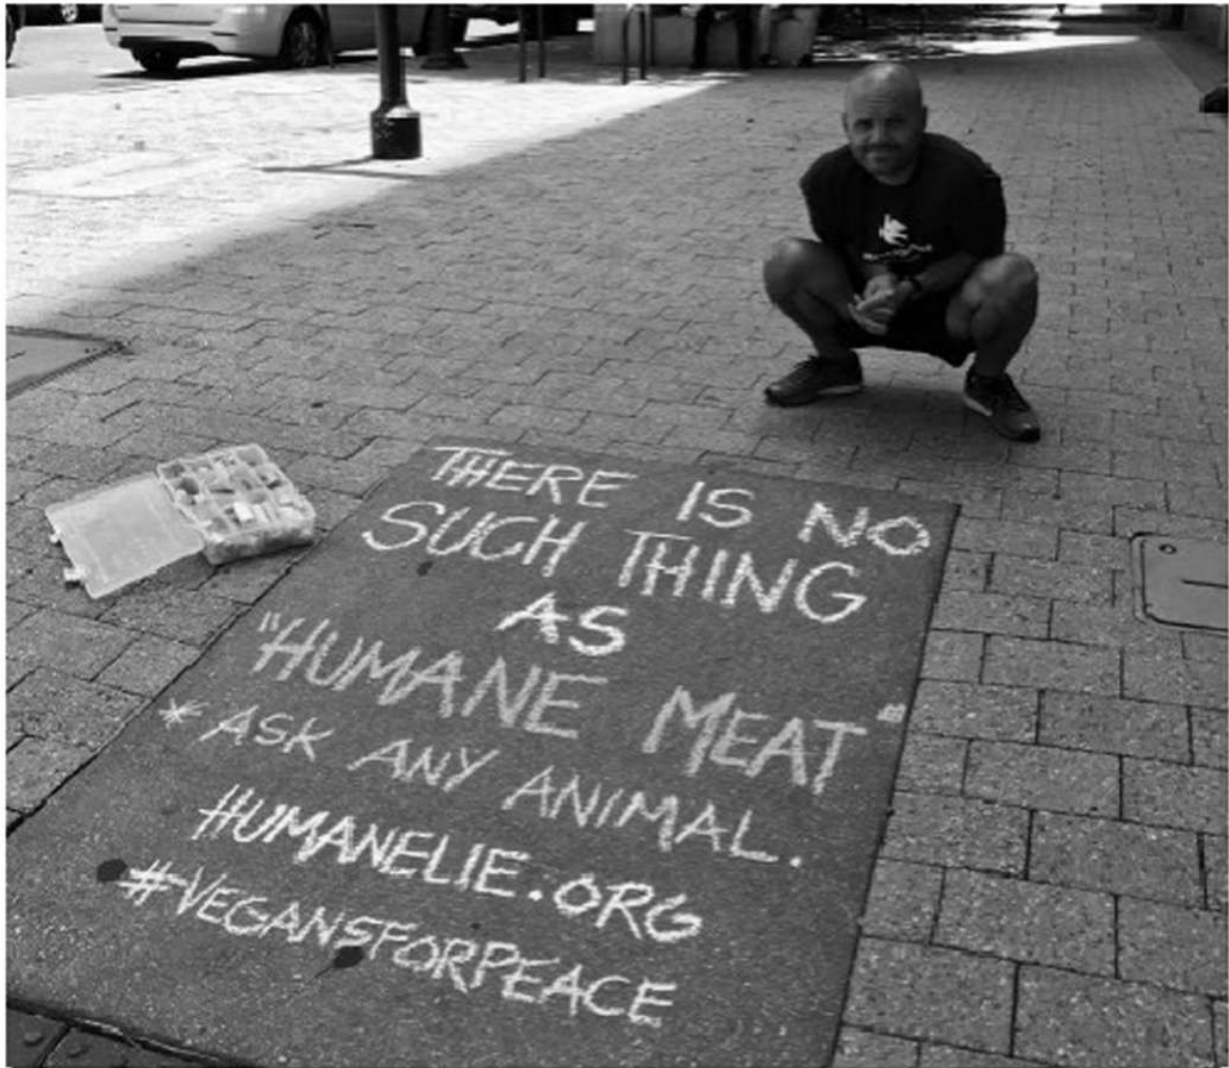 THERE IS NO
SUCH THING
AS
"HUMANE MEAT"
* ASK ANY ANIMAL.
HUMANELIE.ORG
#VEGANSFORPEACE